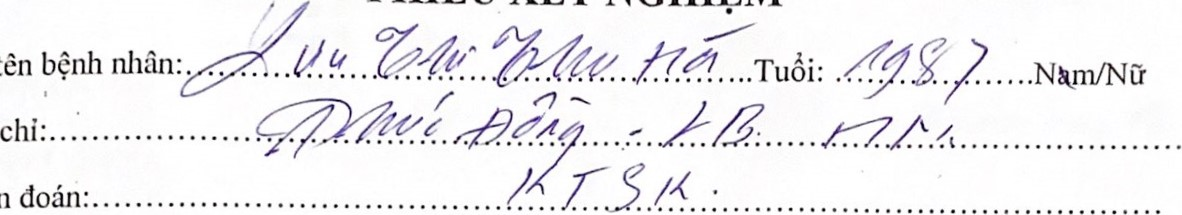 PHIẾU XÉT NGHIỆM
tên bệnh nhân: Lưu Thị Thu Hà Tuổi: 1987 Nam/Nữ
chỉ: Phúc Đồng - LB. HN.
n đoán: KTSK.